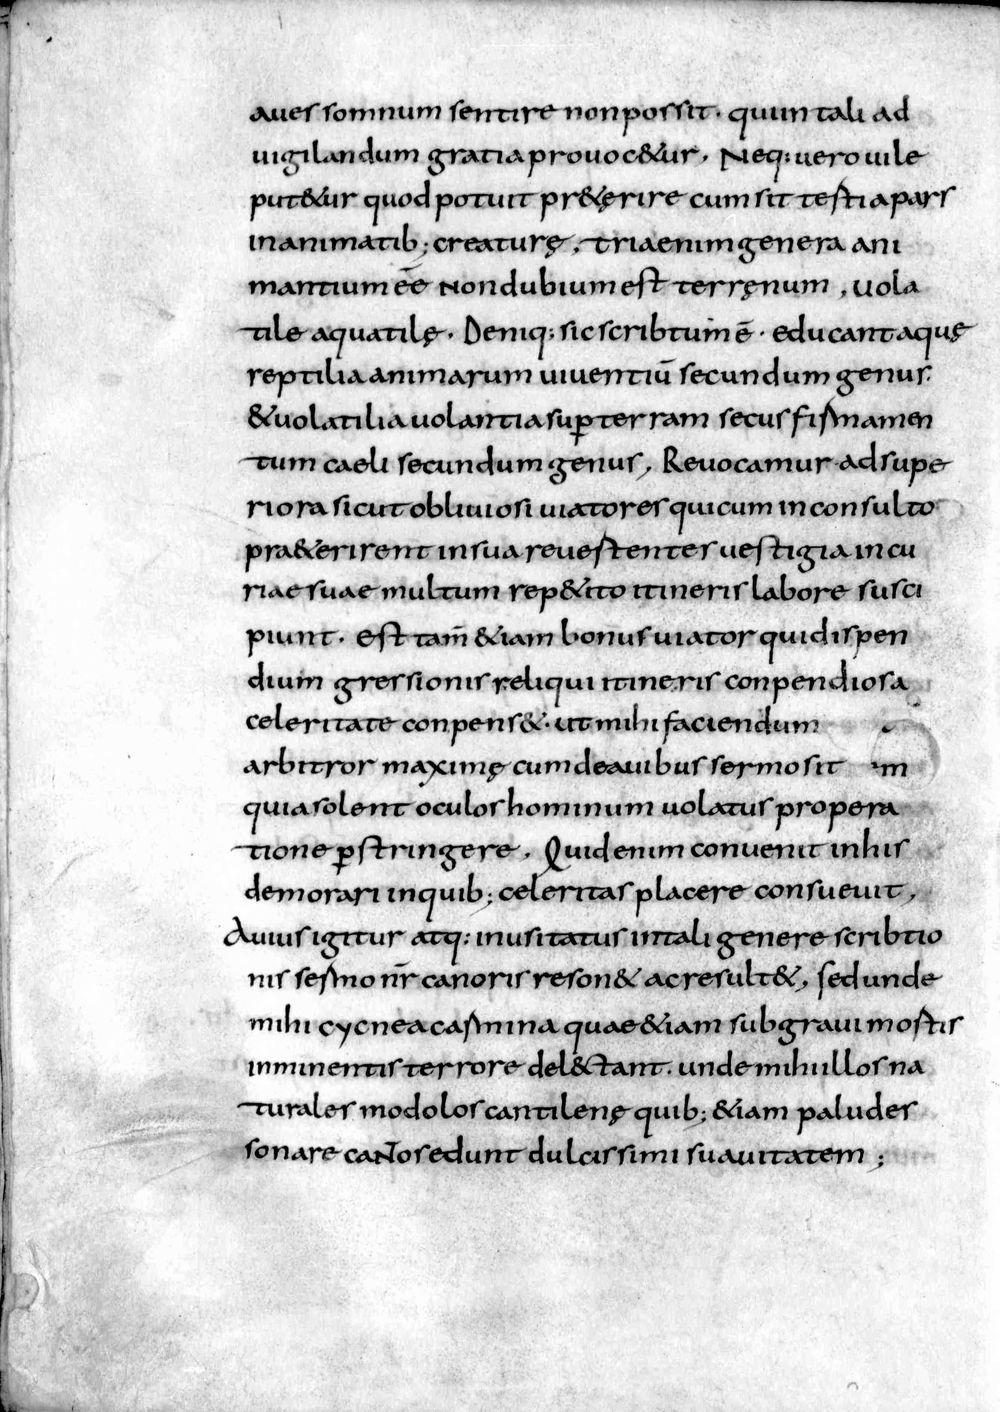 aues somnum sentire non possit. quum tali ad
uigilandum gratia prouoc&ur. Neq; uero uile
put&ur quod potuit pr&ęrire cum sit testia pars
inanimatib; creaturę. tria enim genera ani
mantium ēē Non dubium est terręnum, uola
tile aquatilę. Deniq; sic scribtum ē. educant aquę
reptilia animarum uiuentiū secundum genus.
& uolatilia uolantia sup terram secus firmamen
tum caeli secundum genus, Reuocamur ad supe
riora sicut obliuiosi uiatores qui cum inconsulto
pra&erirent in sua reuestentes uestigia incu
riae suae multum rep&ito itineris labore susci
piunt. est tam̄ &iam bonus uiator qui dispen
dium gressionis reliqui itineris conpendiosa
celeritate conpens&. ut mihi faciendum
arbitror maximę cum de auibus sermo sit m
quia solent oculos hominum uolatus propera
tione pstringere. Quid enim conuenit in his
demorari in quib; celeritas placere consueuit,
Auius igitur atq; inusitatus in tali genere scribtio
nis sermo nr̄ canoris reson& ac result&, sed unde
mihi cycnea carmina quae &iam sub graui mortis
inminentis terrore del&tant. unde mihi illos na
turales modolos cantilenę quib; &iam paludes
sonare caNTos edunt dulcissimi suauitatem;